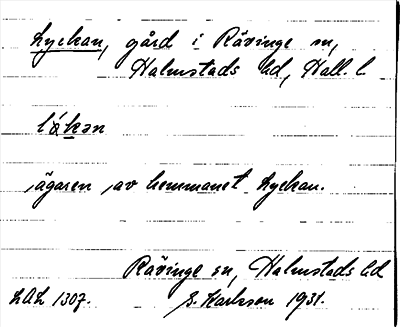 Lyckan, gård i Rävinge sn,
Halmstads hd, Hall. l.
lǻkən
ägaren av hemmanet Lyckan.
Rävinge sn, Halmstads hd
LAL 1307. S. Karlsson 1931.